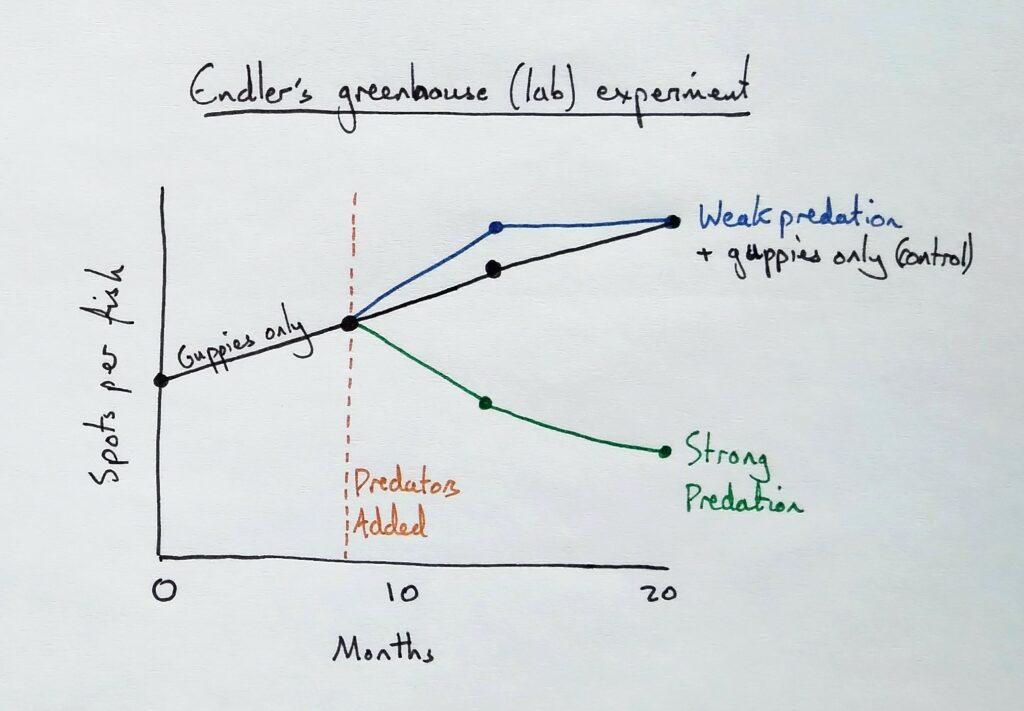 Endler's greenhouse (lab) experiment
Weak predation
+ guppies only (control)
Guppies only
Spots per fish
Strong
Predation
Predators
Added
0 10 20
Months